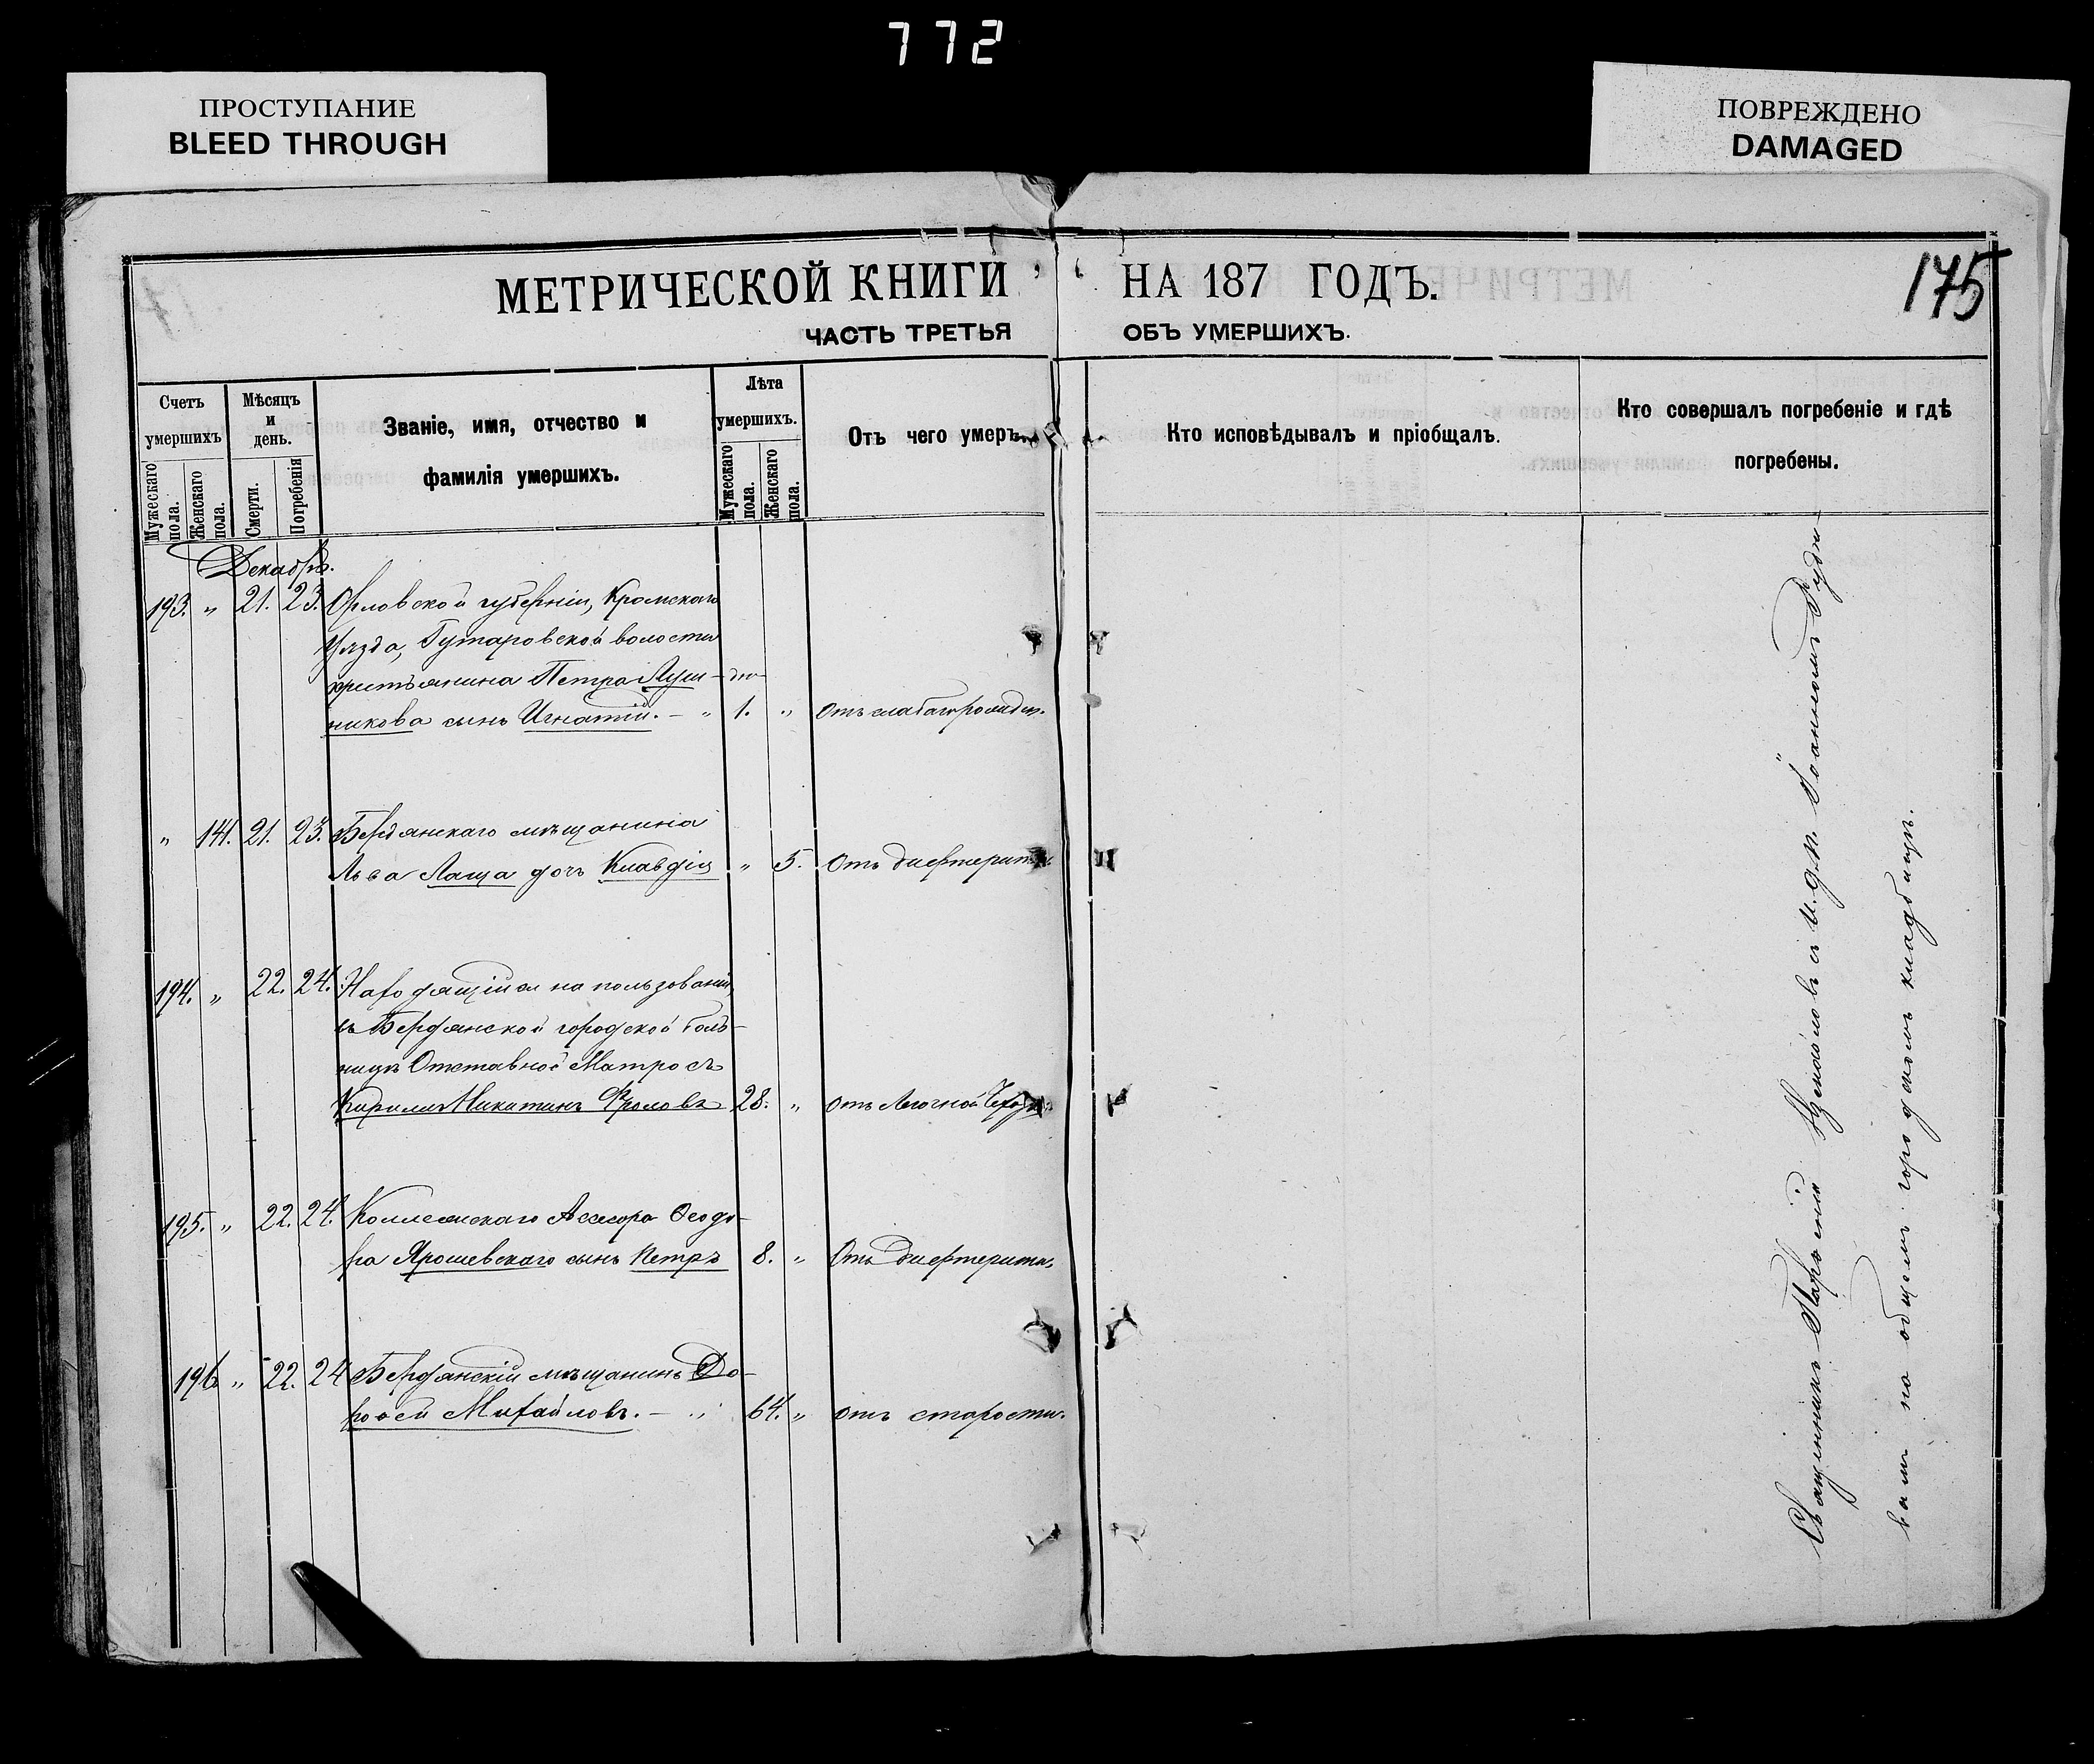 772
ПРОСТУПАНИЕ
BLEED THROUGH
ПОВРЕЖДЕНО
DAMAGED
МЕТРИЧЕСКОЙ КНИГИ НА 187 ГОДЪ.
175
ЧАСТЬ ТРЕТЬЯ ОБЪ УМЕРШИХЪ.
Счетъ умершихъ
Мужескаго пола.
Женскаго пола.
Мѣсяцъ и день.
Смерти.
Погребенія
Званіе, имя, отчество и
фамилія умершихъ.
Лѣта умершихъ.
Мужескаго пола.
Женскаго пола.
Отъ чего умеръ.
Кто исповѣдывалъ и пріобщалъ.
Кто совершалъ погребеніе и гдѣ
погребены.
Декабрь.
193. " 21. 23. Орловской губерніи, Кромскаго
уѣзда, Гутаровской волости
крестьянина Петра
никова сынъ Игнатій. — " 1. " Отъ
" 141. 21. 23. Бердянскаго мѣщанина
Льва Лаща дочь Клавдія " 5. Отъ дифтерита.
194. " 22. 24. Находящійся на пользованіи,
въ Бердянской городской боль-
ницѣ Отставной Матросъ
Кирилъ Никитинъ Фроловъ 28. " отъ Легочной
195. " 22. 24. Коллежскаго Ассесора Ѳеодо-
ра Ярошевскаго сынъ Петръ 8. " Отъ дифтерита.
196 " 22. 24 Бердянскій мѣщанинъ До-
роѳей Михайловъ. — " 64. " отъ старости.
Священникъ Порфирій съ и. д. п. Іоанномъ Рудо-
вымъ на общемъ городскомъ кладбищѣ.